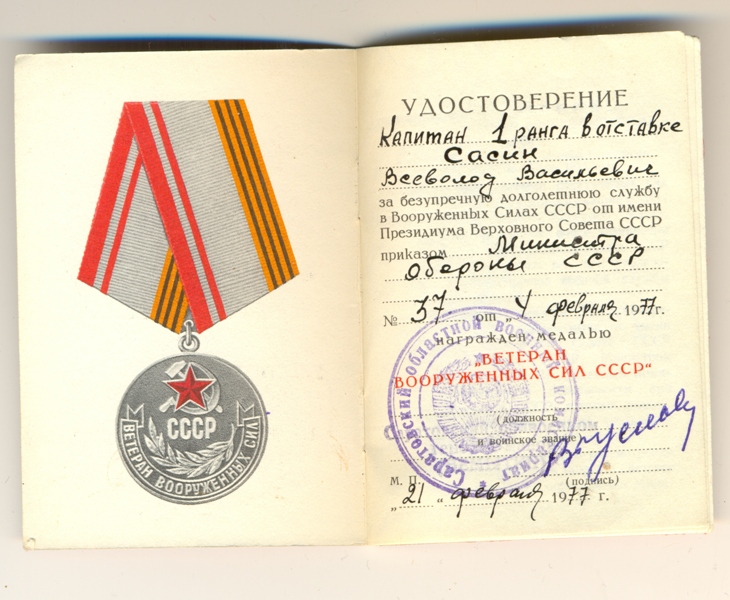 СССР
ВЕТЕРАН ВООРУЖЕННЫХ СИЛ
УДОСТОВЕРЕНИЕ
Капитан 1 ранга в отставке
Сасин
Всеволод Васильевич
за безупречную долголетнюю службу
в Вооруженных Силах СССР от имени
Президиума Верховного Совета СССР
приказом Министра
Обороны СССР
№ 37 от „ 4 февраля 1977г.
награжден медалью
„ВЕТЕРАН
ВООРУЖЕННЫХ СИЛ СССР“
Саратовский областной военный комиссариат
(должность
и воинское звание)
М. П. (подпись)
„ 21 “ февраля 1977 г.